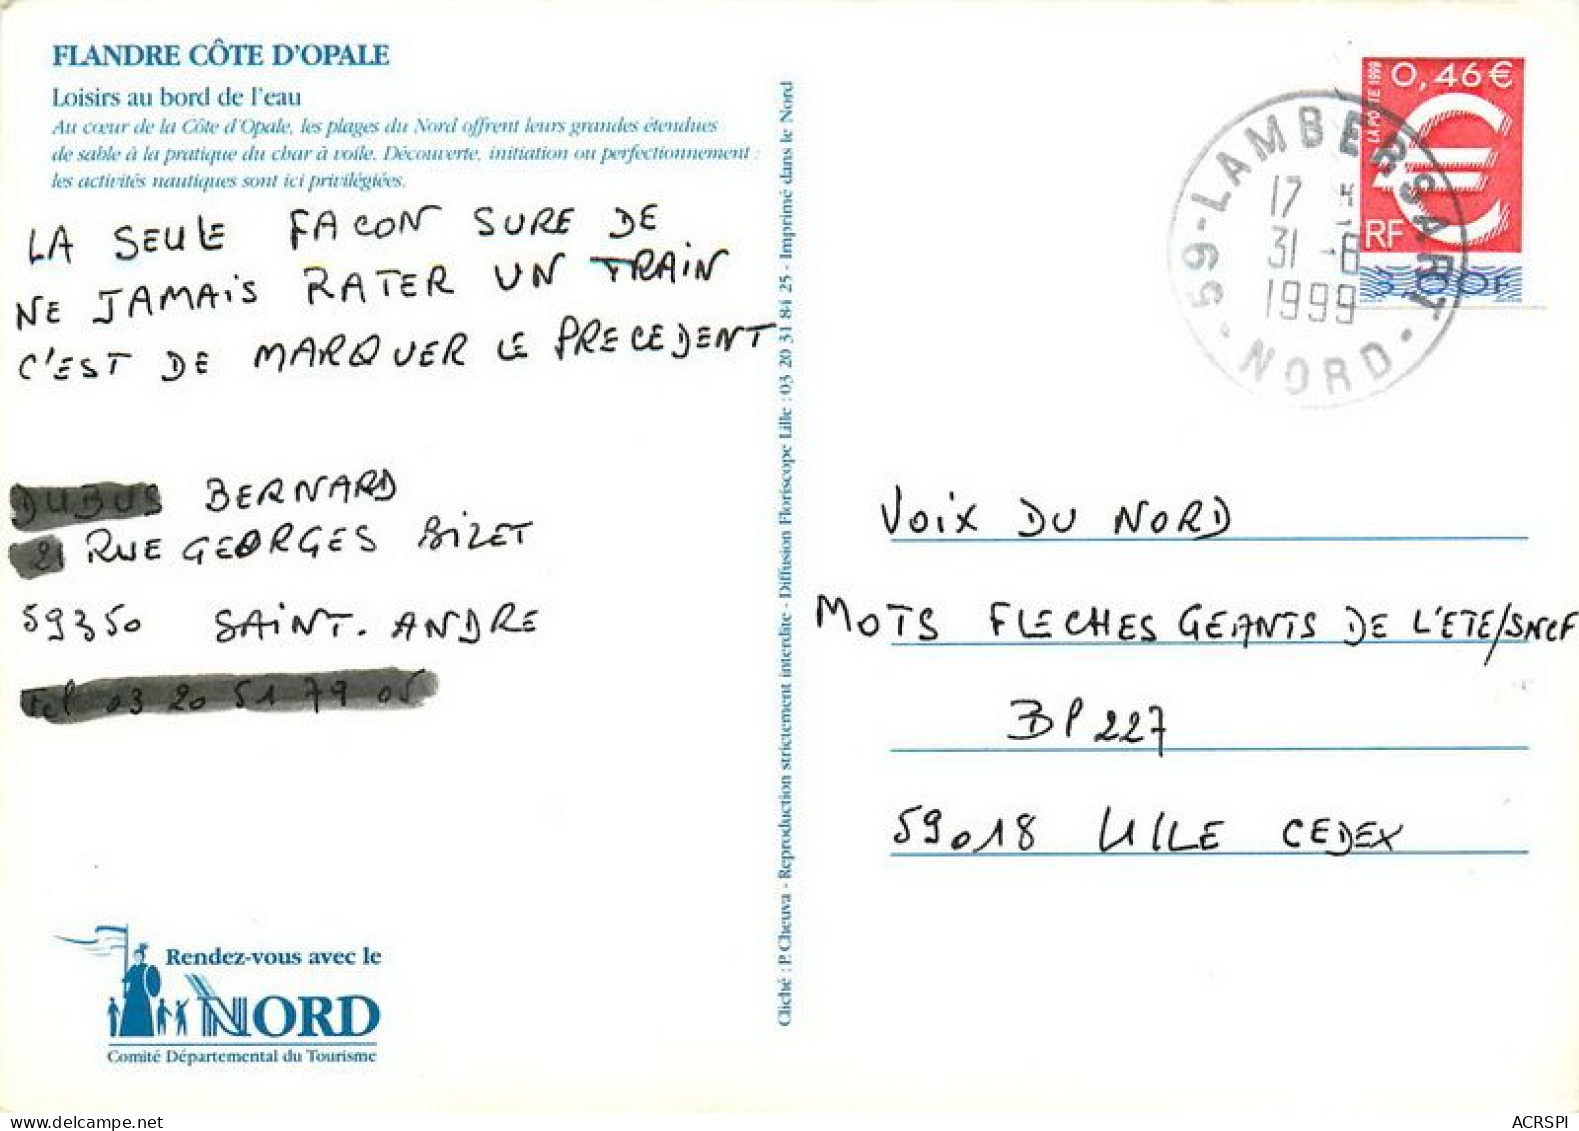 FLANDRE CÔTE D'OPALE
Loisirs au bord de l'eau
Au cœur de la Côte d'Opale, les plages du Nord offrent leurs grandes étendues
de sable à la pratique du char à voile. Découverte, initiation ou perfectionnement :
les activités nautiques sont ici privilégiées.
LA SEULE FACON SURE DE
NE JAMAIS RATER UN TRAIN
C'EST DE MARQUER LE PRECEDENT
BERNARD
RUE GEORGES BIZET
59350 SAINT-ANDRE
Rendez-vous avec le
NORD
Comité Départemental du Tourisme
Cliché : P. Cheuva - Reproduction strictement interdite - Diffusion Floriscope Lille : 03 20 31 84 25 - Imprimé dans le Nord
0,46 €
LA POSTE 1999
RF
3,00F
59-LAMBERSART
17
31 -
1999
NORD
VOIX DU NORD
MOTS FLECHES GEANTS DE L'ETE/SNCF
BP 227
59018 LILLE CEDEX
ACRSPI